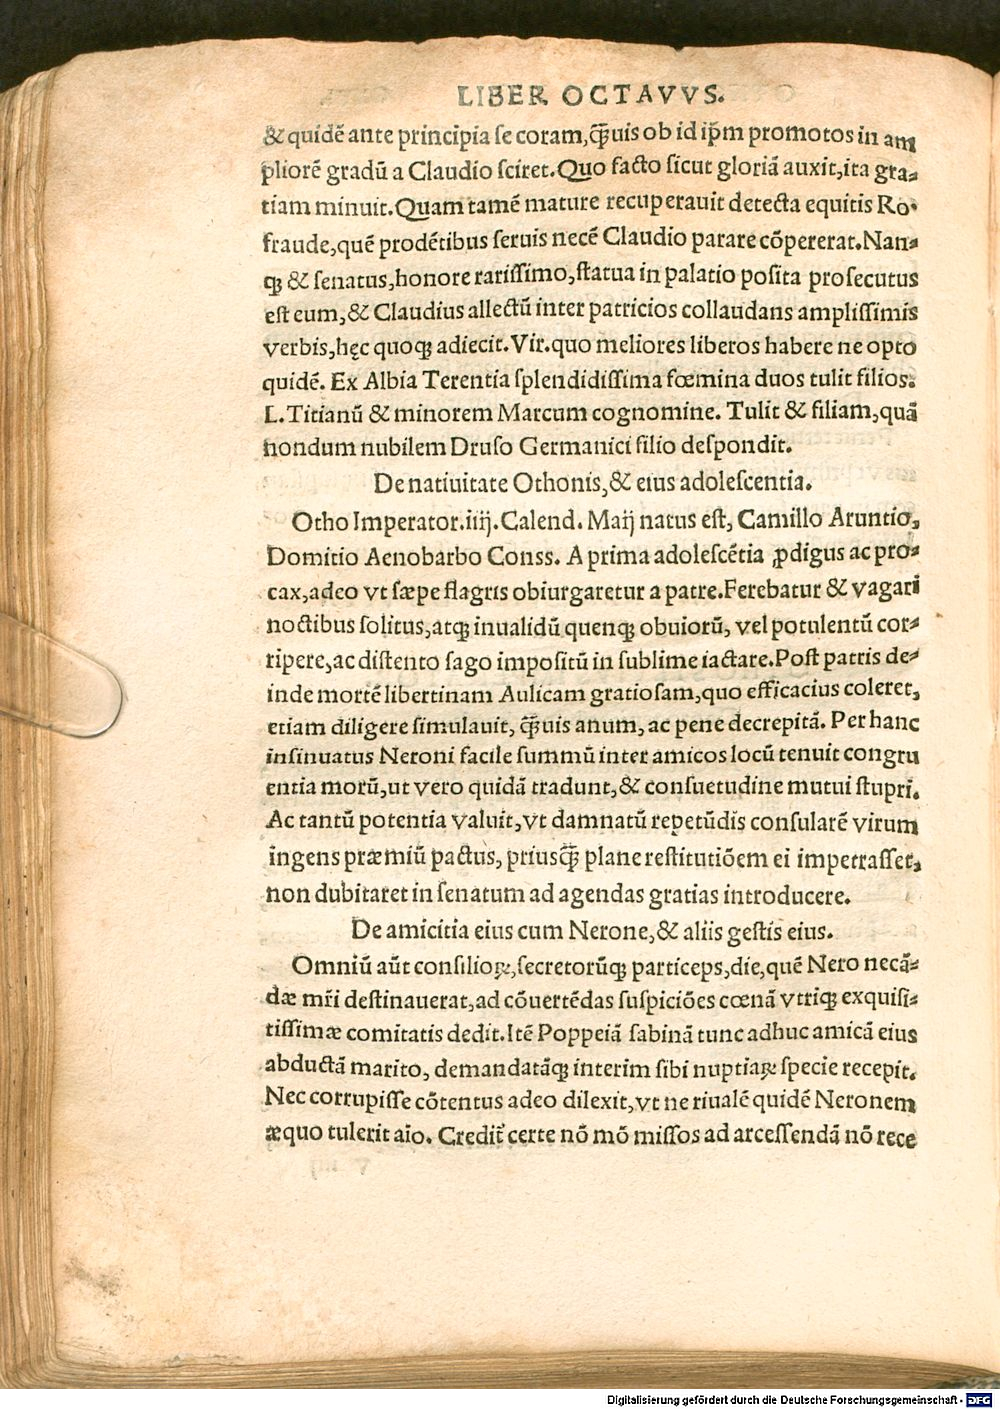 LIBER OCTAVVS.
& quidē ante principia se coram, q̄uis ob id ip̄m promotos in am
pliorē gradū a Claudio sciret. Quo facto sicut gloriā auxit, ita gra-
tiam minuit. Quam tamē mature recuperauit detecta equitis Ro.
fraude, quē prodētibus seruis necē Claudio parare cōpererat. Nan-
qꝫ & senatus, honore rarissimo, statua in palatio posita prosecutus
est eum, & Claudius allectū inter patricios collaudans amplissimis
verbis, hęc quoqꝫ adiecit. Vir. quo meliores liberos habere ne opto
quidē. Ex Albia Terentia splendidissima fœmina duos tulit filios.
L. Titianū & minorem Marcum cognomine. Tulit & filiam, quā
nondum nubilem Druso Germanici filio despondit.
De natiuitate Othonis, & eius adolescentia.
Otho Imperator .iiij. Calend. Maij natus est, Camillo Aruntio,
Domitio Aenobarbo Conss. A prima adolescētia ꝓdigus ac pro-
cax, adeo vt sæpe flagris obiurgaretur a patre. Ferebatur & vagari
noctibus solitus, atqꝫ inualidū quenqꝫ obuiorū, vel potulentū cor-
ripere, ac distento sago impositū in sublime iactare. Post patris de-
inde mortē libertinam Aulicam gratiosam, quo efficacius coleret,
etiam diligere simulauit, q̄uis anum, ac pene decrepitā. Per hanc
insinuatus Neroni facile summū inter amicos locū tenuit congru
entia morū, ut vero quidā tradunt, & consuetudine mutui stupri.
Ac tantū potentia valuit, vt damnatū repetūdis consularē virum
ingens præmiū pactus, priusq̄ plane restitutiōem ei impetrasset,
non dubitaret in senatum ad agendas gratias introducere.
De amicitia eius cum Nerone, & aliis gestis eius.
Omniū aūt consilioꝝ, secretorūqꝫ particeps, die, quē Nero necā-
dæ mr̄i destinauerat, ad cōuertēdas suspiciōes cœnā vtriqꝫ exquisi-
tissimæ comitatis dedit. Itē Poppeiā sabinā tunc adhuc amicā eius
abductā marito, demandatāqꝫ interim sibi nuptiaꝝ specie recepit.
Nec corrupisse cōtentus adeo dilexit, vt ne riualē quidē Neronem
æquo tulerit aīo. Credit̄ certe nō mō missos ad arcessendā nō rece
Digitalisierung gefördert durch die Deutsche Forschungsgemeinschaft - DFG